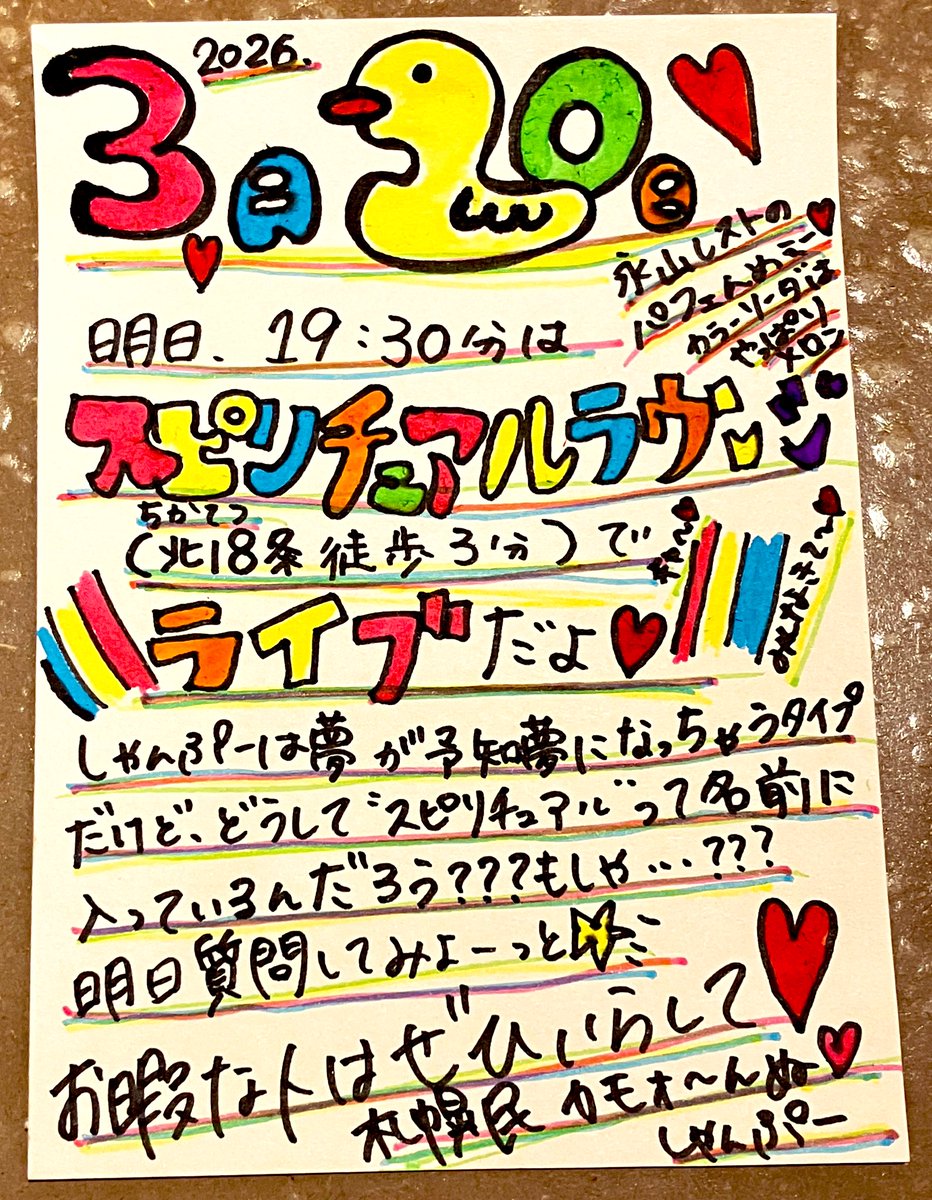 2026.
3月20日
永山レストの
パフェんぬミニー
カラーソーダは
やっぱり
メロン
明日、19:30分は
スピリチュアルラヴ
ちかてつ
(北18条徒歩3分)で
ライブだよ
しゃんぷーは夢が予知夢になっちゃうタイプ
だけど、どうして"スピリチュアル"って名前に
入っているんだろう???もしや...???
明日質問してみよーっと
お暇な人はぜひいらして
札幌民カモォ〜んぬ
しゃんぷー